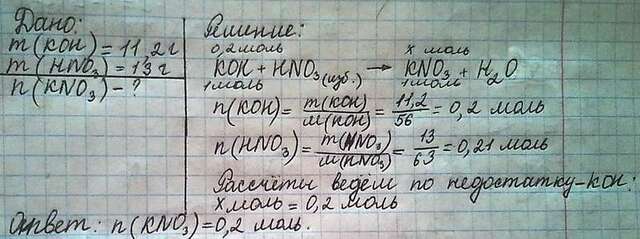 Дано:
m(KOH) = 11,2 г
m(HNO₃) = 13 г
n(KNO₃) - ?
Решение:
0,2 моль х моль
KOH + HNO₃(изб.) → KNO₃ + H₂O
1 моль 1 моль
n(KOH) = m(KOH)/M(KOH) = 11,2/56 = 0,2 моль
n(HNO₃) = m(HNO₃)/M(HNO₃) = 13/63 = 0,21 моль
Рассчёты ведём по недостатку-KOH:
х моль = 0,2 моль
Ответ: n(KNO₃) = 0,2 моль.